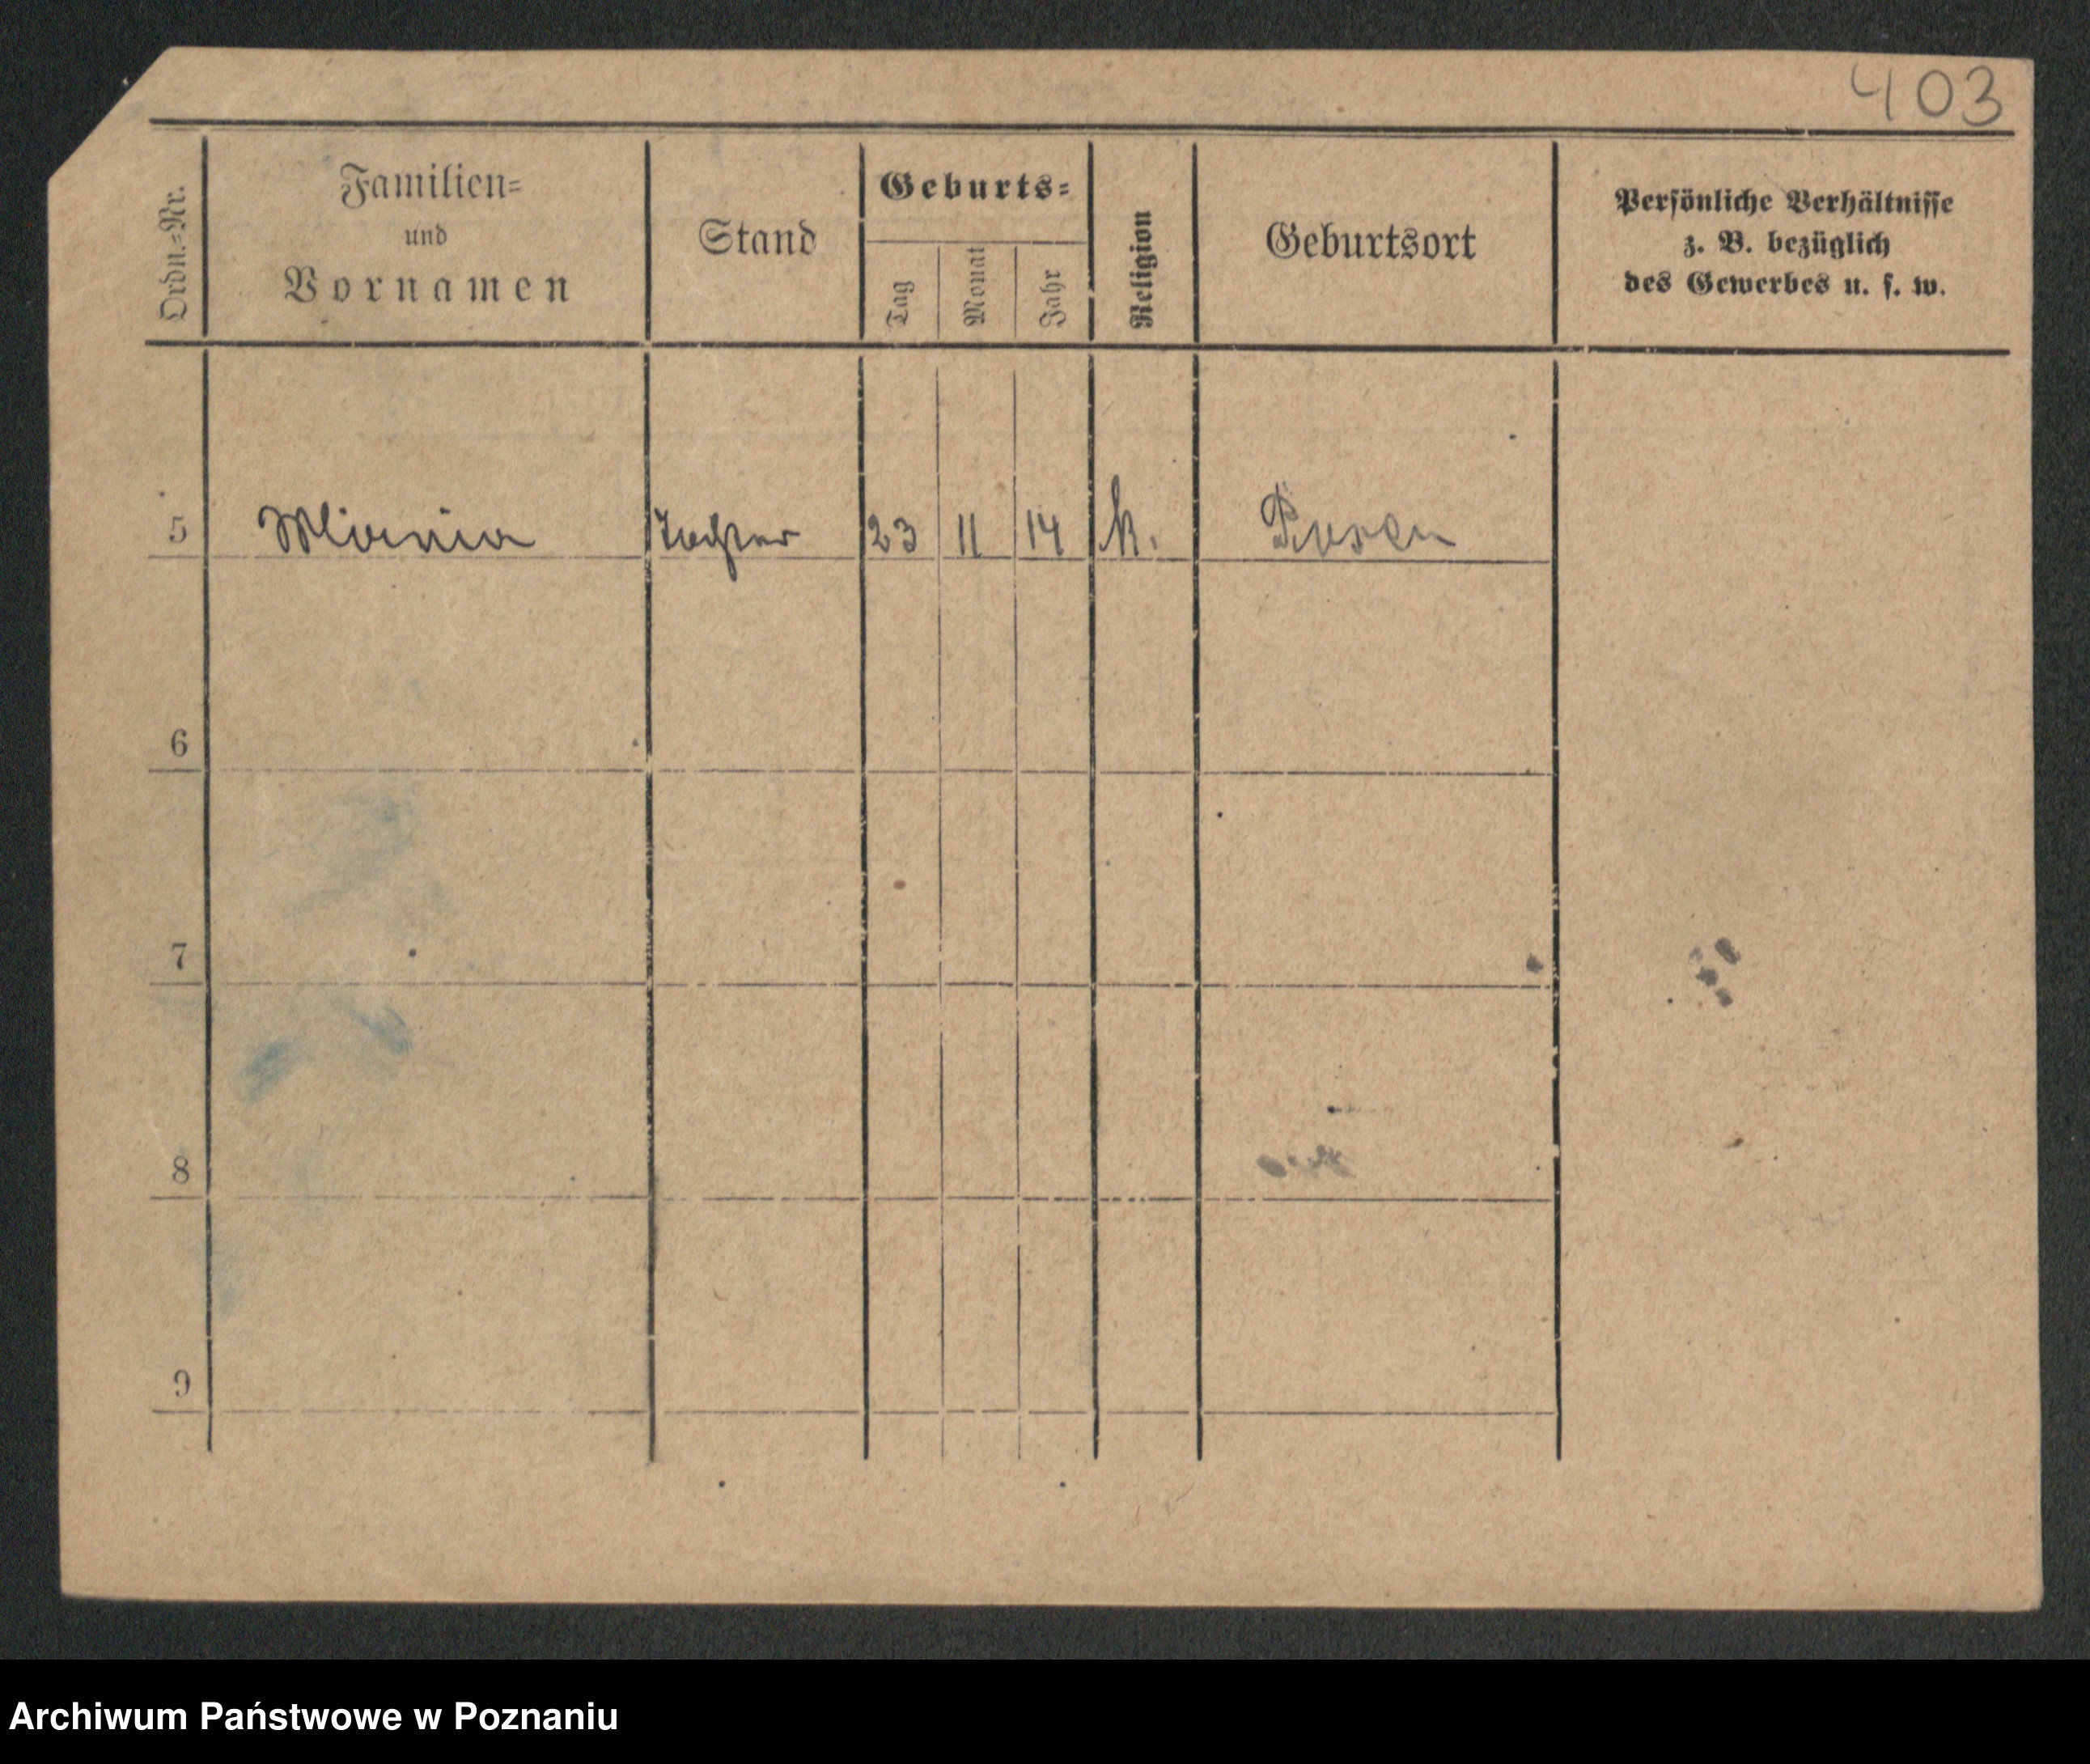 403
Ordn.=Nr.
Familien=
und
Vornamen
Stand
Geburts=
Tag
Monat
Jahr
Religion
Geburtsort
Persönliche Verhältnisse
z. B. bezüglich
des Gewerbes u. s. w.
5 Tochter 23 11 14 k. Posen
6
7
8
9
Archiwum Państwowe w Poznaniu